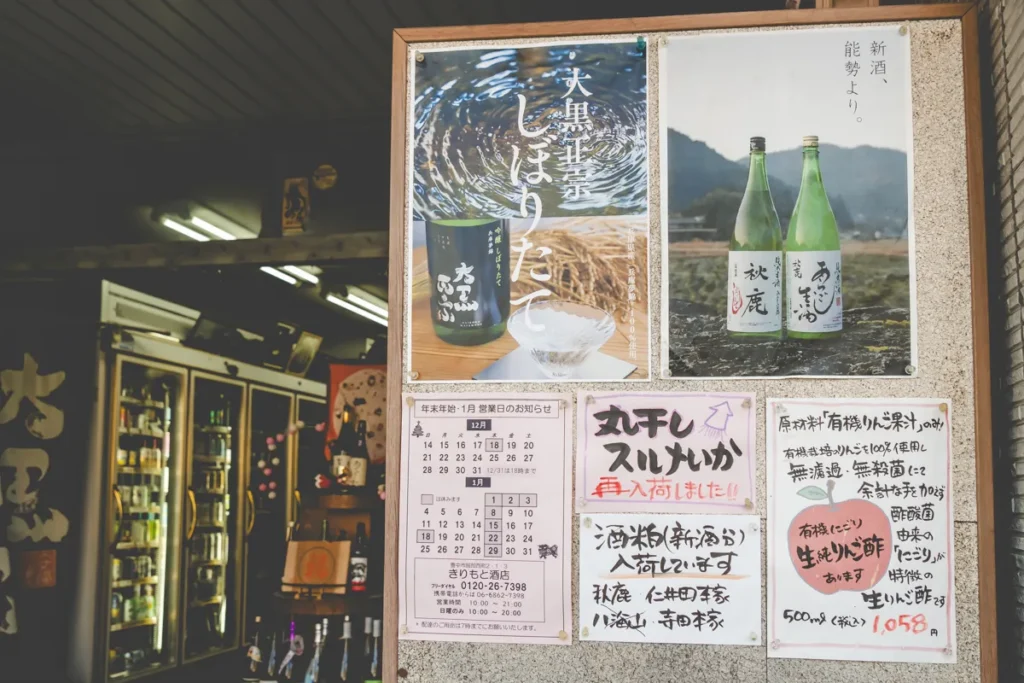 大黒正宗
しぼりたて
吟醸 しぼりたて
大黒正宗
新酒、
能勢より。
秋鹿
秋鹿
大黒
年末年始・1月 営業日のお知らせ
12月
日 月 火 水 木 金 土
14 15 16 17 18 19 20
21 22 23 24 25 26 27
28 29 30 31 12/31は18時まで
1月
は休みます
1 2 3
4 5 6 7 8 9 10
11 12 13 14 15 16 17
18 19 20 21 22 23 24
25 26 27 28 29 30 31
きりもと酒店
フリーダイヤル 0120-26-7398
携帯電話からは 06-6862-7398
営業時間 10:00 ～ 21:00
日曜のみ 10:00 ～ 20:00
* 配達のご用命は7時までにお願いいたします。
丸干し
スルメいか
再入荷しました!!
酒粕(新酒分)
入荷しています
秋鹿 仁井田本家
八海山 寺田本家
原材料「有機りんご果汁」のみ!
有機栽培のりんごを100%使用し
無濾過・無殺菌にて
余計な手を加えず
酢酸菌
由来の
「にごり」が
特徴の
生りんご酢です
有機にごり
生純りんご酢
あります
500ml (税込) 1,058円